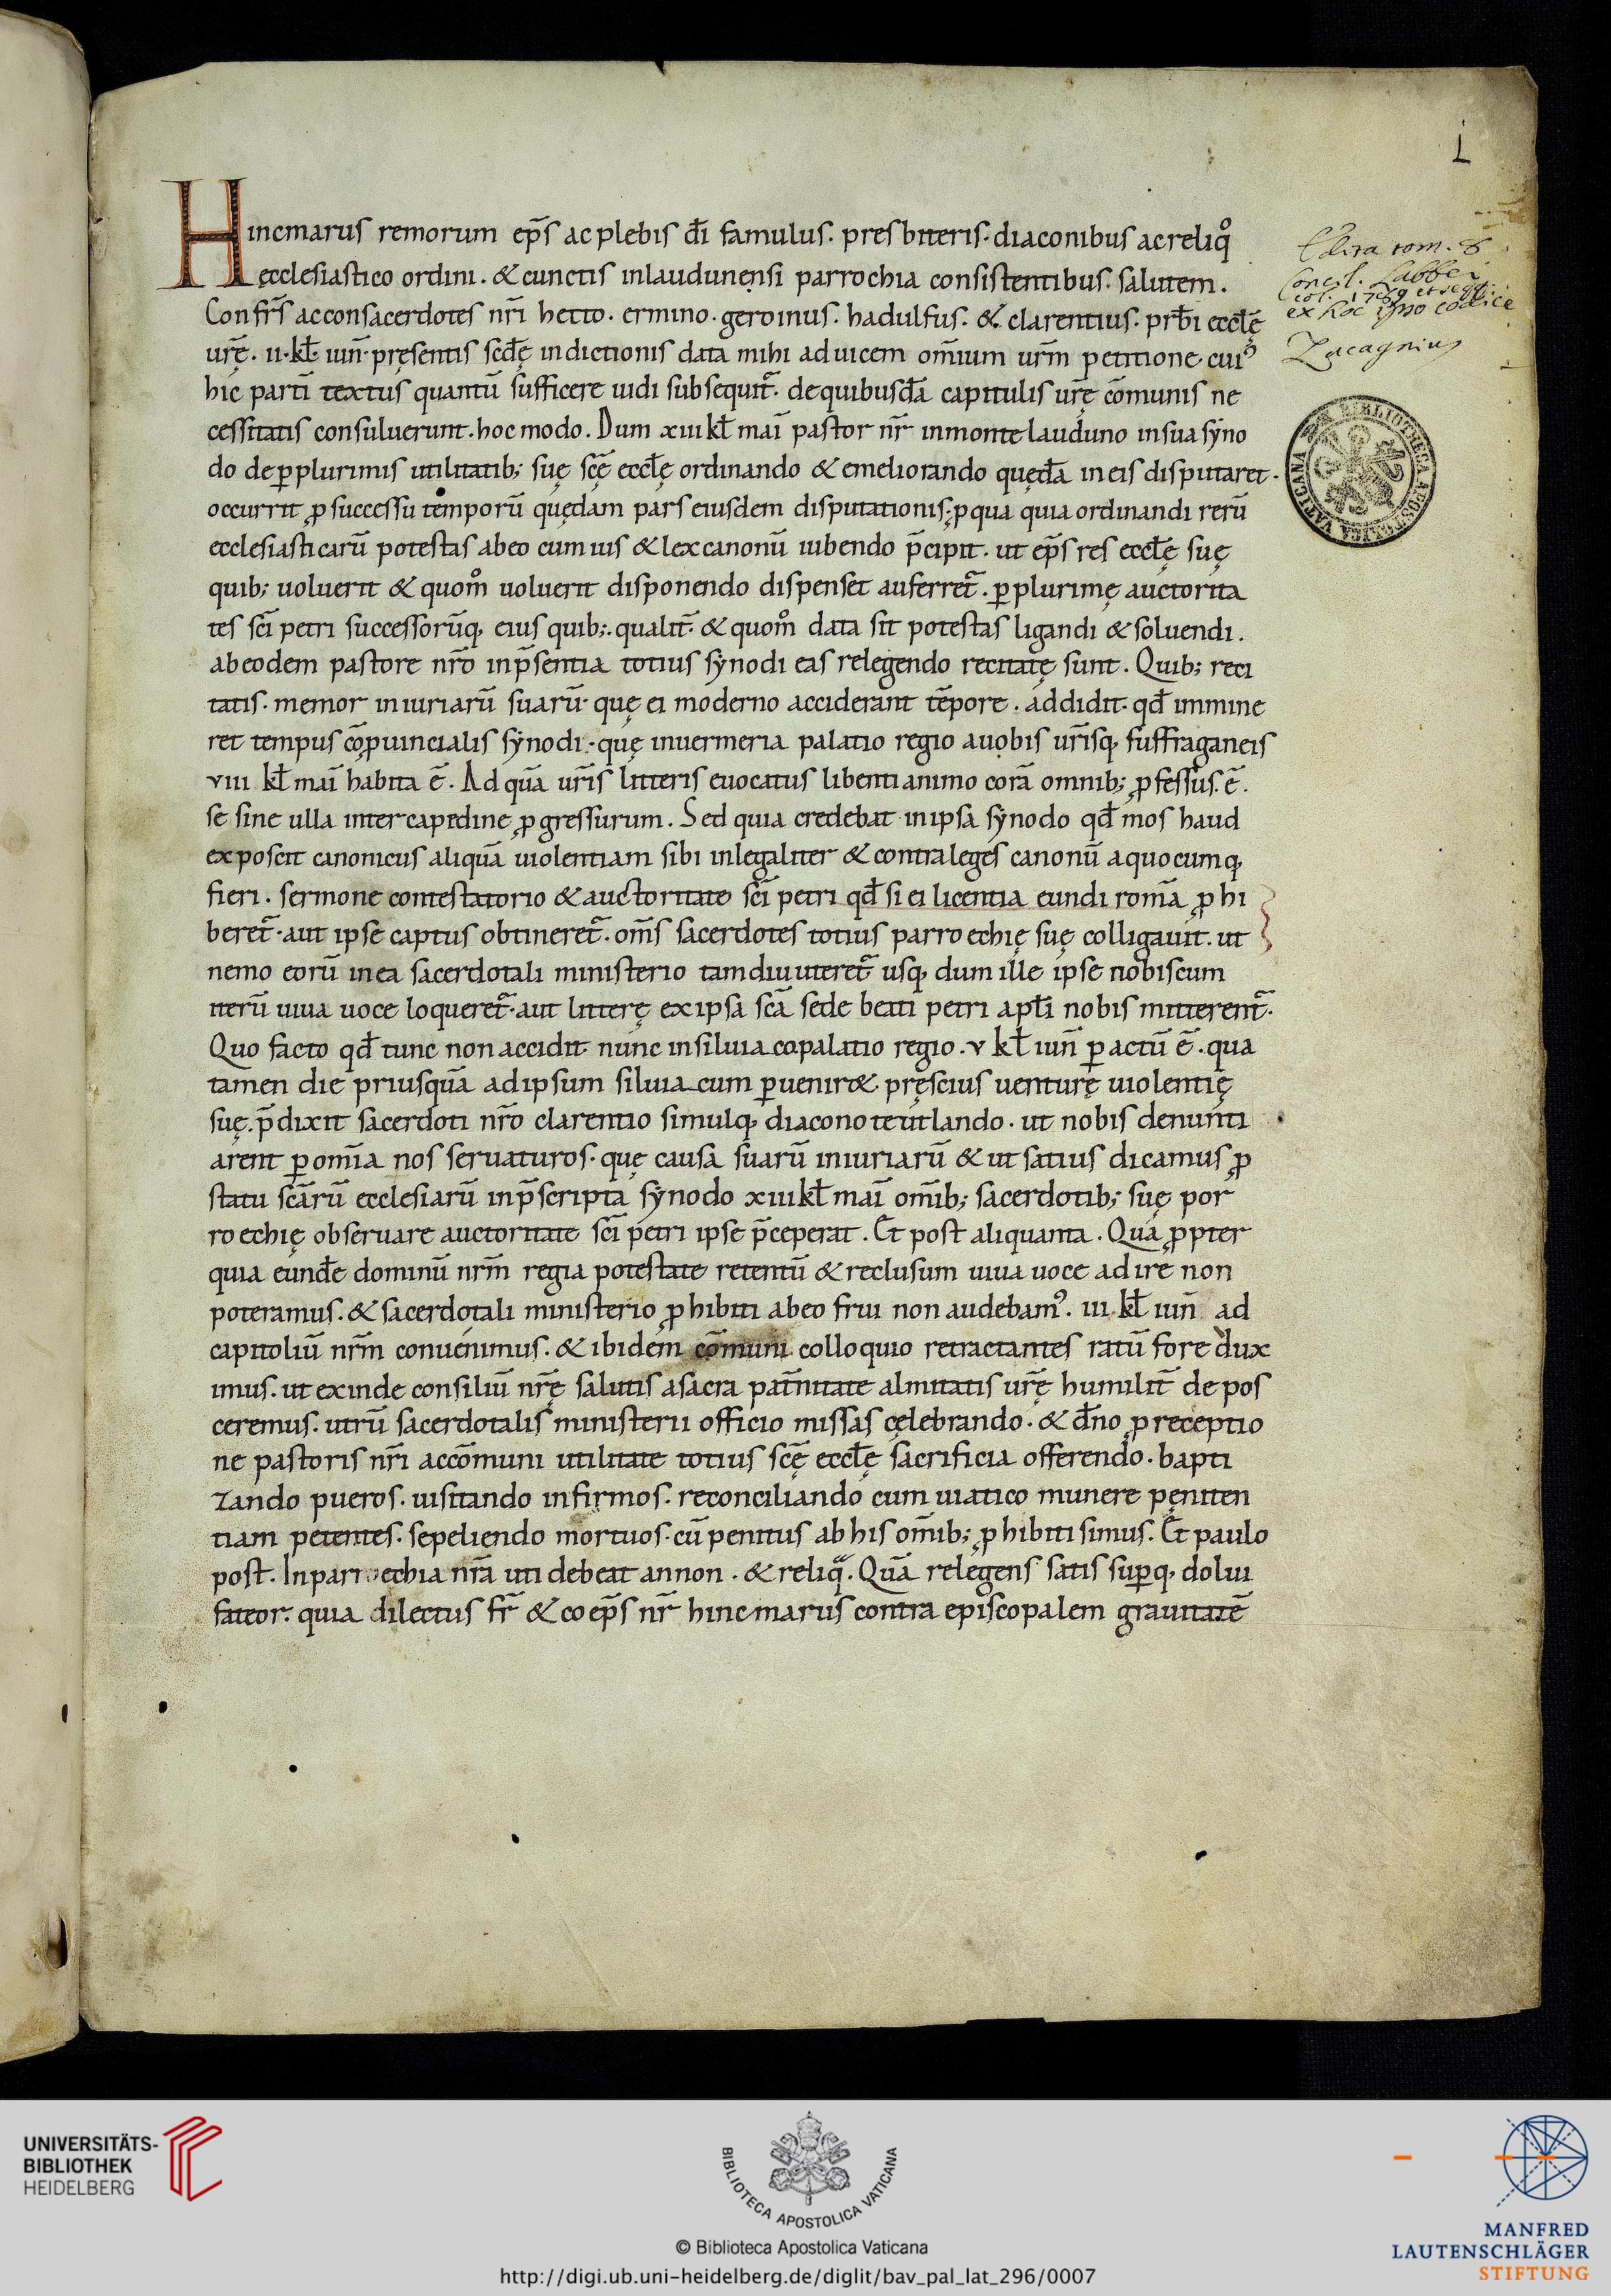 1
Hincmarus remorum ep̄s ac plebis d̄i famulus. presbiteris. diaconibus ac reliq̊
ecclesiastico ordini. & cunctis inlaudunensi parrochia consistentibus. salutem.
Confr̄s acconsacerdotes nr̄i hetto. ermino. geroinus. hadulfus. & clarentius. prb̄i eccl̄ę
ur̄ę. ii. kl̄. iun̄. pręsentis scd̄ę indictionis data mihi aduicem om̄ium ur̄m petitione. cui᾽
hic partī textus quantū sufficere uidi subsequit̄. de quibusdā capitulis ur̄ę cōmunis ne
cessitatis consuluerunt. hoc modo. Dum xiii kl̄ mai̅ pastor nr̄ inmonte lauduno insua syno
do de ꝑplurimis utilitatib; suę scę̄ eccl̄ę ordinando & emeliorando quędā in eis disputaret.
occurrit ꝓ successu temporū quędam pars eiusdem disputationis; ꝑ qua quia ordinandi rerū
ecclesiasticarū potestas abeo cum ius & lex canonū iubendo p̄cipit. ut ep̄s res eccl̄ę suę
quib; uoluerit & quom̊ uoluerit disponendo dispenset auferret̄. ꝑplurimę auctorita
tes sc̄i petri successorūq, eius quib;. qualit̄. & quom̊ data sit potestas ligandi & soluendi.
abeodem pastore nr̄o inp̄sentia totius synodi eas relegendo recitatę sunt. Quib; reci
tatis. memor iniuriarū suarū. quę ei moderno acciderant tēpore. addidit. qd̄ immine
ret tempus cōꝓuincialis synodi. quę inuermeria palatio regio auobis ur̄isq, suffraganeis
viii kl̄ mai̅ habita ē. Ad quā ur̄is litteris euocatus libenti animo corā omnib; ꝓfessus. ē.
se sine ulla intercapedine ꝓgressurum. Sed quia credebat inipsa synodo qd̄ mos haud
exposcit canonicus aliquā uiolentiam sibi inlegaliter & contraleges canonū aquocumq,
fieri. sermone contestatorio & auctoritate sc̄i petri qd̄ si ei licentia eundi romā ꝓhi
beret̄. aut ipse captus obtineret̄. om̄s sacerdotes totius parroechię suę colligauit. ut
nemo eorū in ea sacerdotali ministerio tamdiu uteret̄ usq, dum ille ipse nobiscum
iterū uiua uoce loqueret̄. aut litterę ex ipsa sc̄a sede beati petri apl̄i nobis mitterent̄.
Quo facto qd̄ tunc non accidit. nunc insiluiaco palatio regio. v kl̄ iun̄ ꝑactū ē. qua
tamen die priusquā adipsum siluiacum ꝑuenir&. pręscius uenturę uiolentię
suę. p̄dixit sacerdoti nr̄o clarentio simulq, diacono teutlando. ut nobis denunti
arent ꝑ om̄ia nos seruaturos. quę causa suarū iniuriarū & ut satius dicamus ꝓ
statu scārū ecclesiarū inp̄scripta synodo xiii kl̄ mai̅ om̄ib; sacerdotib; suę por
roechię obseruare auctoritate sc̄i petri ipse p̄ceperat. Et post aliquanta. Qua ꝓpter
quia eundē dominū nr̄m regia potestate retentū & reclusum uiua uoce adire non
poteramus. & sacerdotali ministerio ꝓhibiti abeo frui non audebam᾽. iii. kl̄ iun̄ ad
capitoliū nr̄m conuenimus. & ibidem cōmuni colloquio retractantes ratū fore dux
imus. ut exinde consiliū nr̄ę salutis asacra pat̄nitate almitatis ur̄ę humilit̄ depos
ceremus. utrū sacerdotalis ministerii officio missas cęlebrando. & dn̄o ꝓ receptio
ne pastoris nr̄i accōmuni utilitate totius scę̄ eccl̄ę sacrificia offerendo. bapti
zando pueros. uisitando infirmos. reconciliando cum uiatico munere pęniten
tiam petentes. sepeliendo mortuos. cū penitus ab his om̄ib; ꝓhibiti simus. Et paulo
post. In parroechia nr̄a uti debeat annon. & reliq̄. Quā relegens satis suꝑq, dolui
fateor. quia dilectus fr̄ & coep̄s nr̄ hincmarus contra episcopalem grauitatē
Edita tom. 8
Concil. Labbei
col. 1789 et seqq.
ex hoc ipso codice
Zacagnius
BIBLIOTHECA APOSTOLICA VATICANA
UNIVERSITÄTS-
BIBLIOTHEK
HEIDELBERG
BIBLIOTECA APOSTOLICA VATICANA
© Biblioteca Apostolica Vaticana
http://digi.ub.uni-heidelberg.de/diglit/bav_pal_lat_296/0007
MANFRED
LAUTENSCHLÄGER
STIFTUNG